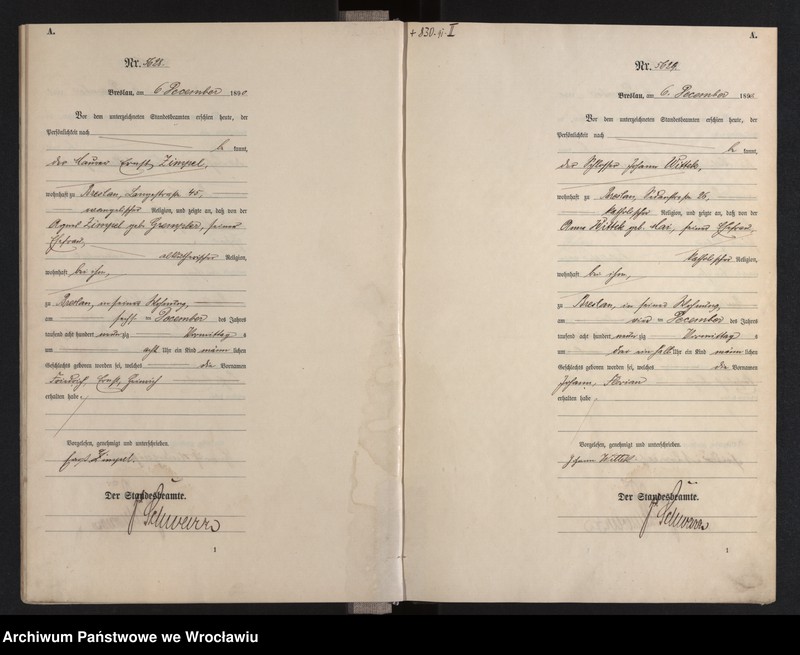 A.
Nr. 5628.
Breslau, am 6 December 1890
Vor dem unterzeichneten Standesbeamten erschien heute, der
Persönlichkeit nach
kannt,
der Ernst Zimpel,
wohnhaft zu Breslau, Langestraße 45,
evangelischer Religion, und zeigte an, daß von der
Zimpel geb. seiner
Ehefrau,
altlutherischer Religion,
wohnhaft bei ihm,
zu Breslau, in seiner Wohnung,
am sechsten December des Jahres
tausend acht hundert neunzig Vormittags
um acht Uhr ein Kind männlichen
Geschlechts geboren worden sei, welches die Vornamen
Friedrich Ernst Heinrich
erhalten habe.
Vorgelesen, genehmigt und unterschrieben.
Ernst Zimpel.
Der Standesbeamte.
1
+ 830. II
A.
Nr. 5629.
Breslau, am 6. December 1890
Vor dem unterzeichneten Standesbeamten erschien heute, der
Persönlichkeit nach
kannt,
der Schlosser Johann Wittek,
wohnhaft zu Breslau,
katholischer Religion, und zeigte an, daß von der
Anna Wittek geb. Hai, seiner Ehefrau,
katholischer Religion,
wohnhaft bei ihm,
zu Breslau, in seiner Wohnung,
am vierten December des Jahres
tausend acht hundert neunzig Vormittags
um ein halb Uhr ein Kind männlichen
Geschlechts geboren worden sei, welches die Vornamen
Johann, Florian
erhalten habe
Vorgelesen, genehmigt und unterschrieben.
Johann Wittek
Der Standesbeamte.
1
Archiwum Państwowe we Wrocławiu